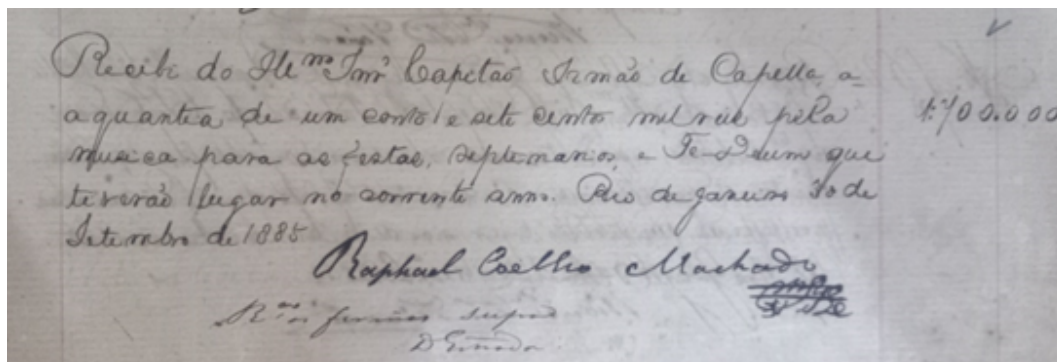 Recebi do Ille.mo Snr Capitaõ Irmaõ de Capella, a
a quantia de um conto e sete cento mil reis pela 1:700.000
musica para as festas, septenarios, e Te-Deum que
teveraõ lugar no corrente anno. Rio de Janeiro 30 de
Setembro de 1885
Raphael Coelho Machado
supra